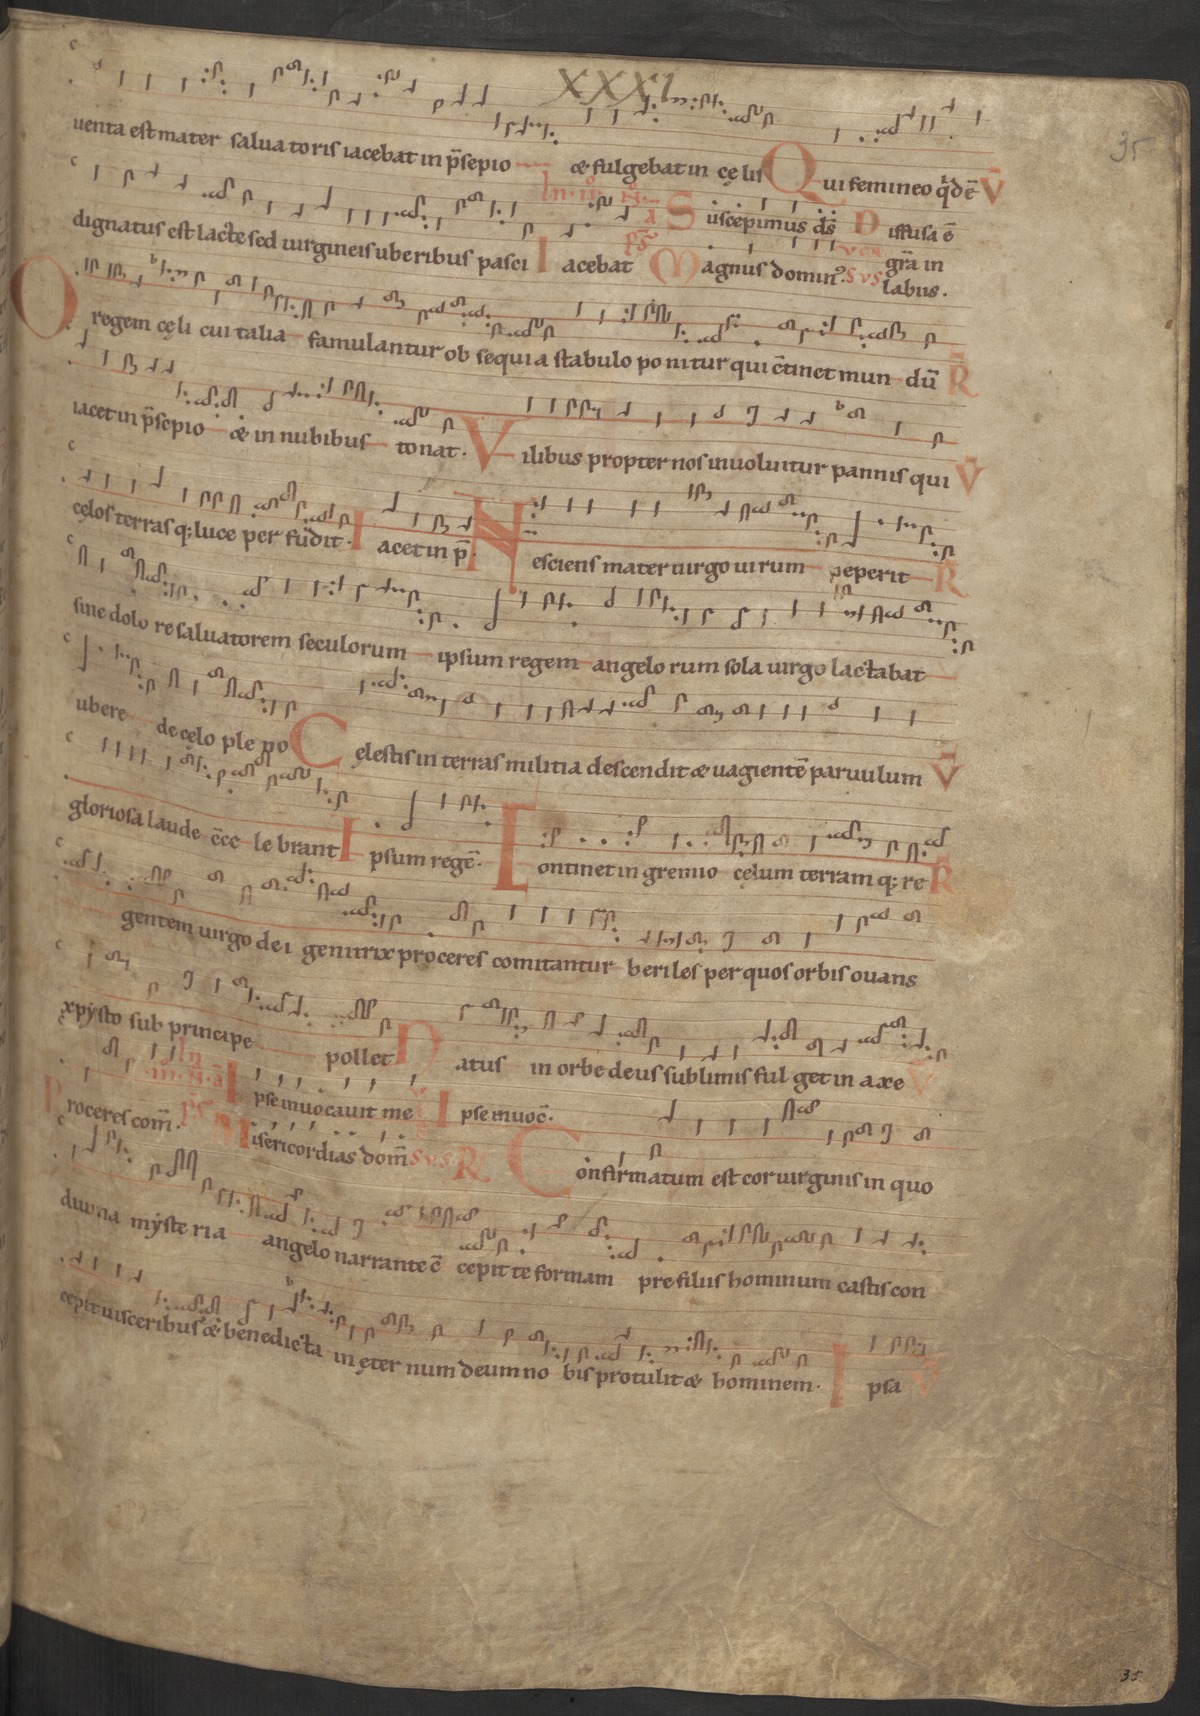 XXXI
35
uenta est mater saluatoris iacebat in p̄sepio æ fulgebat in cęlis Qui femineo q̄ d̄ē V̄
dignatus est lacte sed uirgineis uberibus pasci Iacebat In .ii. Suscepimus d̄s Diffusa ē
Ps Magnus domin⁹. Vers⁹ gr̄a in labiis.
O regem cęli cui talia famulantur obsequia stabulo ponitur qui c̄tinet mundū R̄
iacet in p̄sepio æ in nubibus tonat. Vilibus propter nos inuoluitur pannis qui V̄
cęlos terras q; luce perfudit. Iacet in p̄. Nesciens mater uirgo uirum peperit R̄
sine dolore saluatorem seculorum ipsum regem angelorum sola uirgo lactabat
ubere de celo pleno Cęlestis in terras militia descendit æ uagientē paruulum V̄
gloriosa laude c̄ccelebrant Ipsum regē. Continet in gremio cęlum terram q; re R̄
gentem uirgo dei genitrix proceres comitantur heriles per quos orbis ouans
xpỹsto sub principe pollet Natus in orbe deus sublimis fulget in axe V̄
Proceres com̄. In .iii. Ipse inuocauit me Ipse inuoc̄.
Ps Misericordias dom̄ R̄ Confirmatum est cor uirginis in quo
diuina mẏsteria angelo narrante c̄cepit te formam pre filiis hominum castis con
cepit uisceribus æ benedicta in ęternum deum nobis protulit æ hominem. Ipsa V̄
35